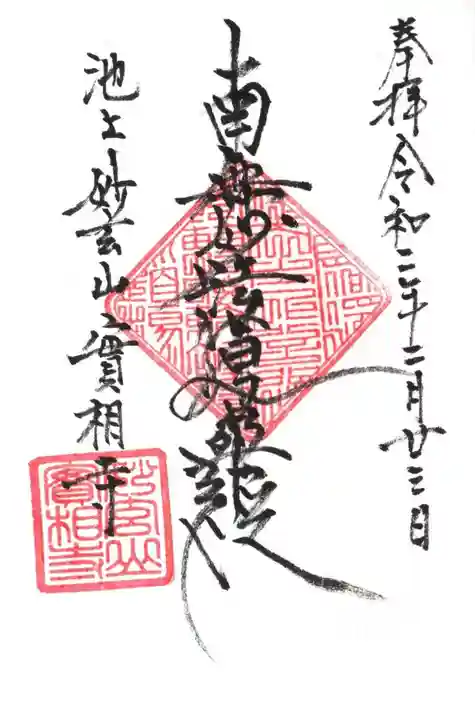 奉拝令和二年十二月廿三日
南無妙法蓮華經
池上妙玄山實相寺
妙玄山
實相寺